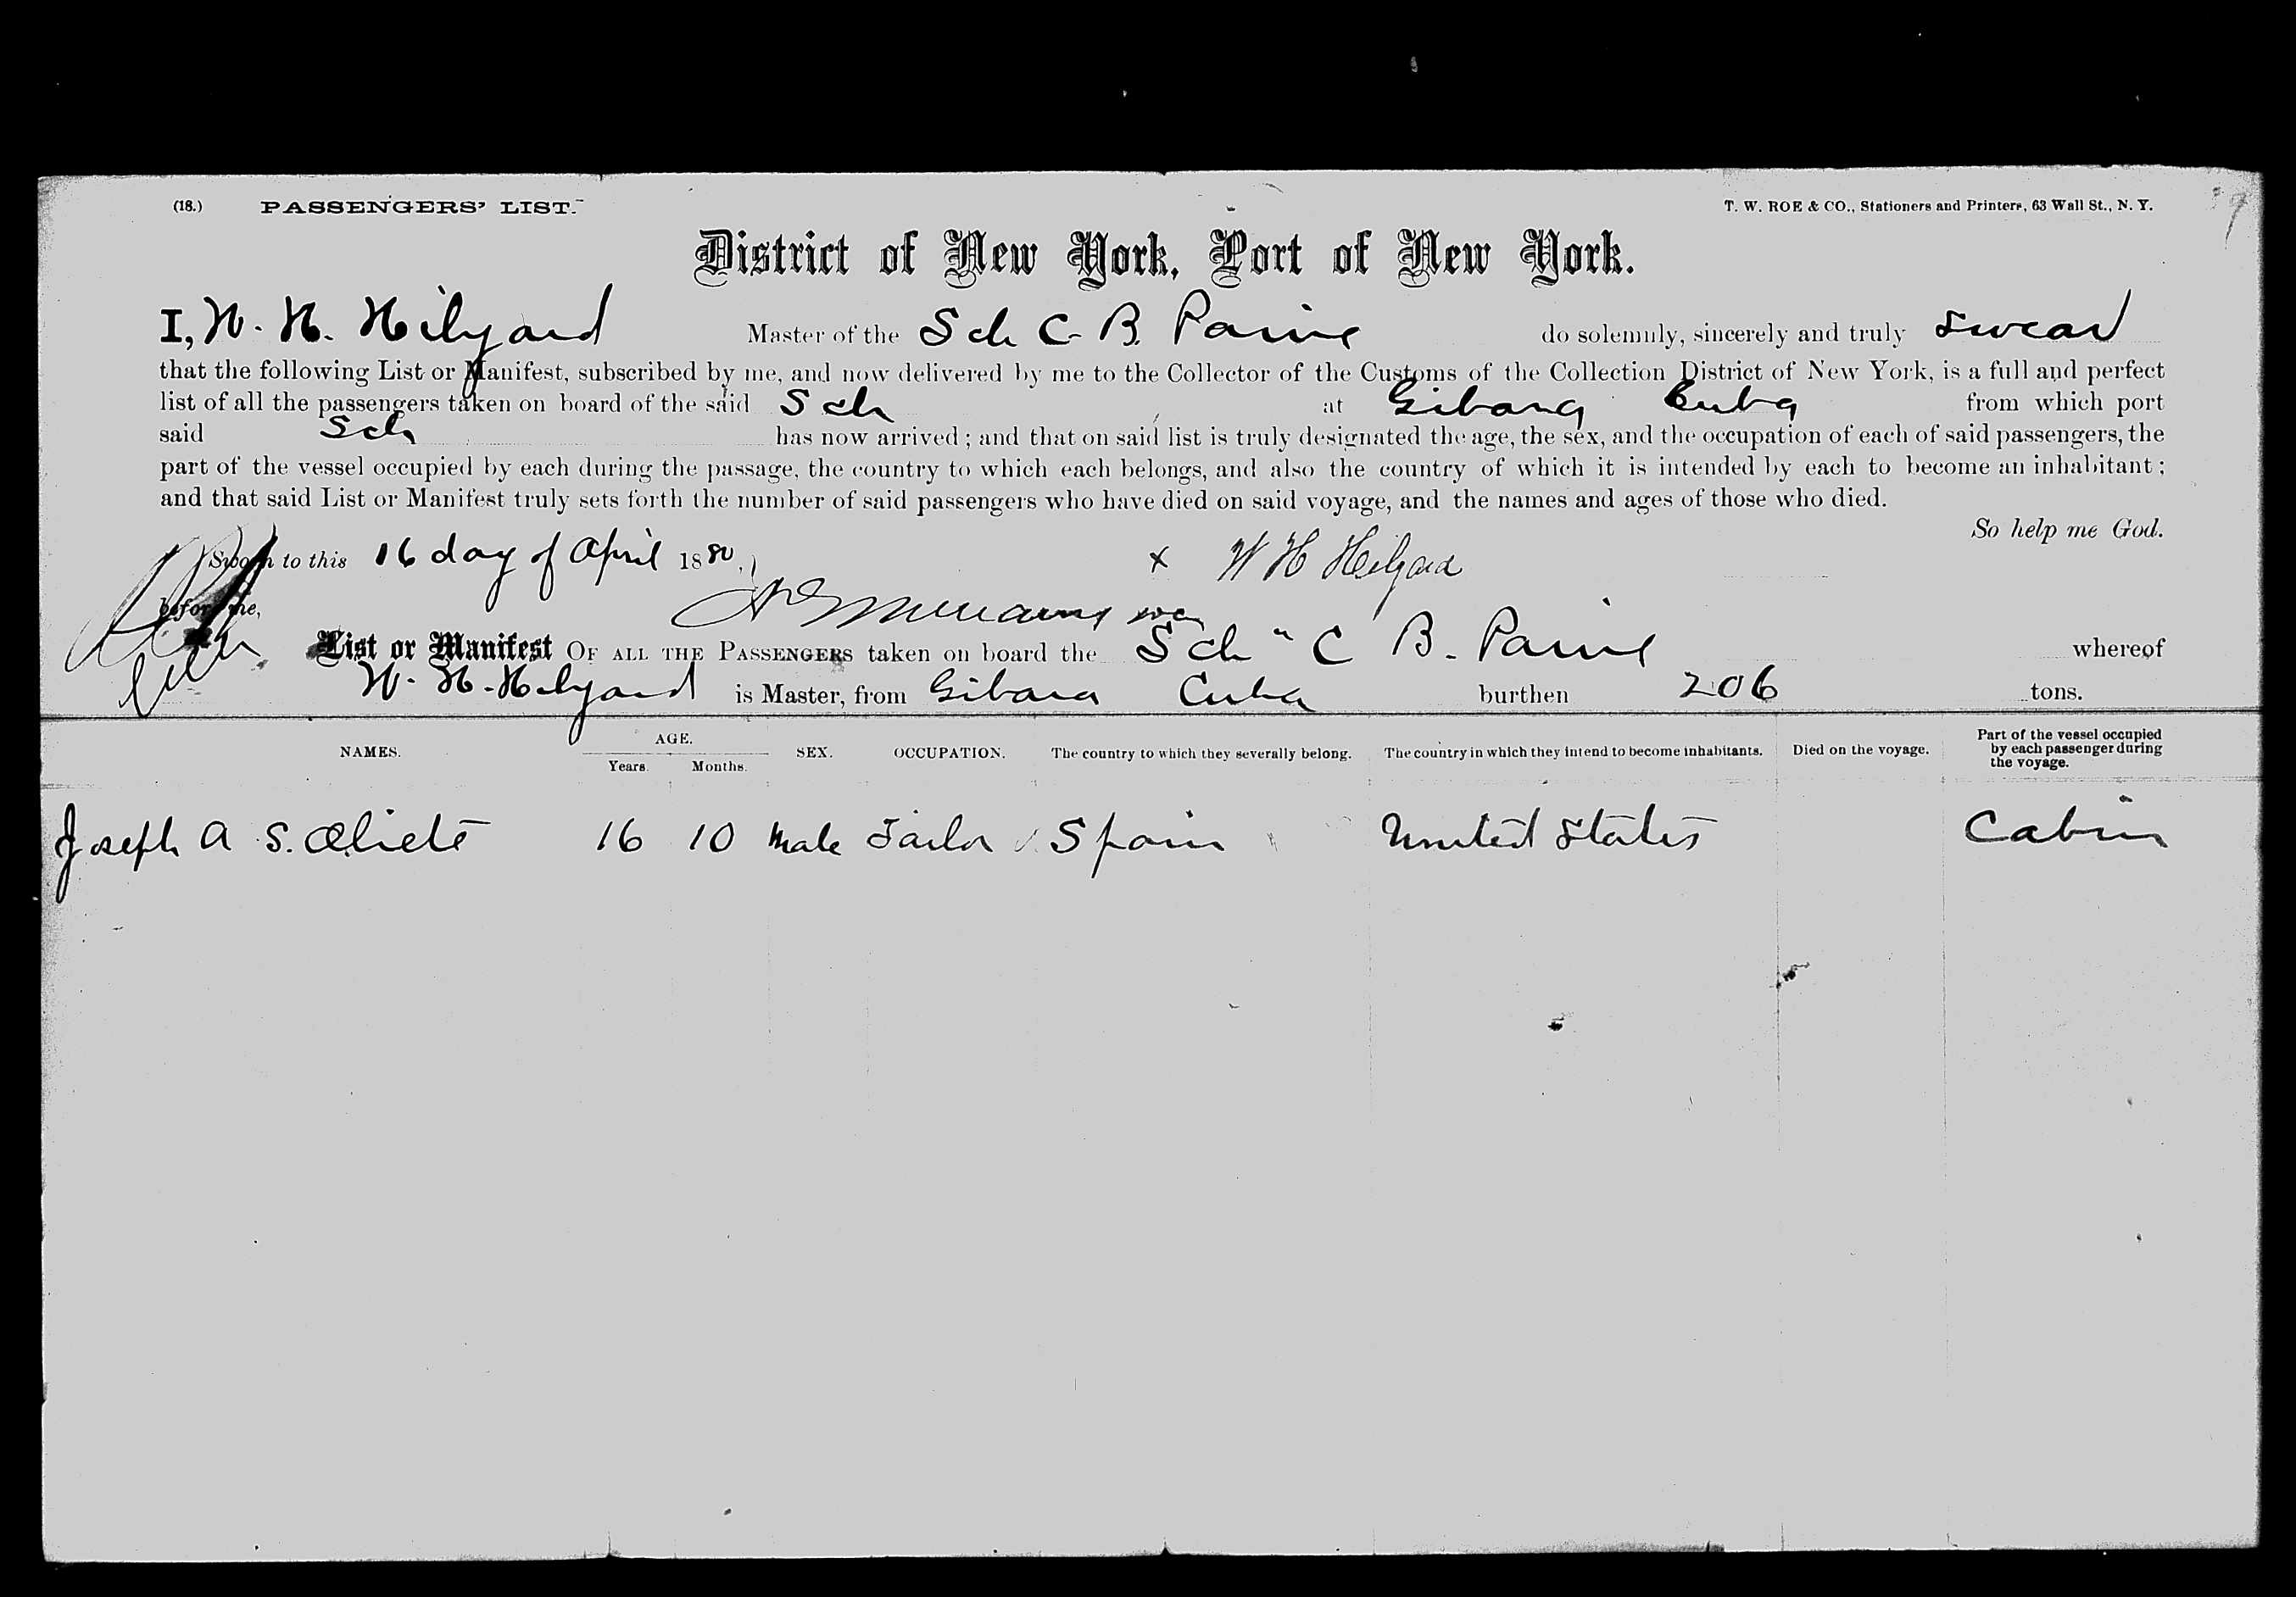 (18.) PASSENGERS' LIST. T. W. ROE & CO., Stationers and Printers, 63 Wall St., N. Y.
District of New York, Port of New York.
I, W. H. Hilyard Master of the Sch C. B. Paine do solemnly, sincerely and truly swear
that the following List or Manifest, subscribed by me, and now delivered by me to the Collector of the Customs of the Collection District of New York, is a full and perfect
list of all the passengers taken on board of the said Sch at Gibara Cuba from which port
said Sch has now arrived; and that on said list is truly designated the age, the sex, and the occupation of each of said passengers, the
part of the vessel occupied by each during the passage, the country to which each belongs, and also the country of which it is intended by each to become an inhabitant;
and that said List or Manifest truly sets forth the number of said passengers who have died on said voyage, and the names and ages of those who died.
So help me God.
Sworn to this 16 day of April 1880, x W H Hilyard
before me,
List or Manifest OF ALL THE PASSENGERS taken on board the Sch " C B. Paine whereof
W. H. Hilyard is Master, from Gibara Cuba burthen 206 tons.
NAMES. AGE. Years. Months. SEX. OCCUPATION. The country to which they severally belong. The country in which they intend to become inhabitants. Died on the voyage. Part of the vessel occupied by each passenger during the voyage.
Joseph A S. 16 10 Male Tailor Spain United States Cabin